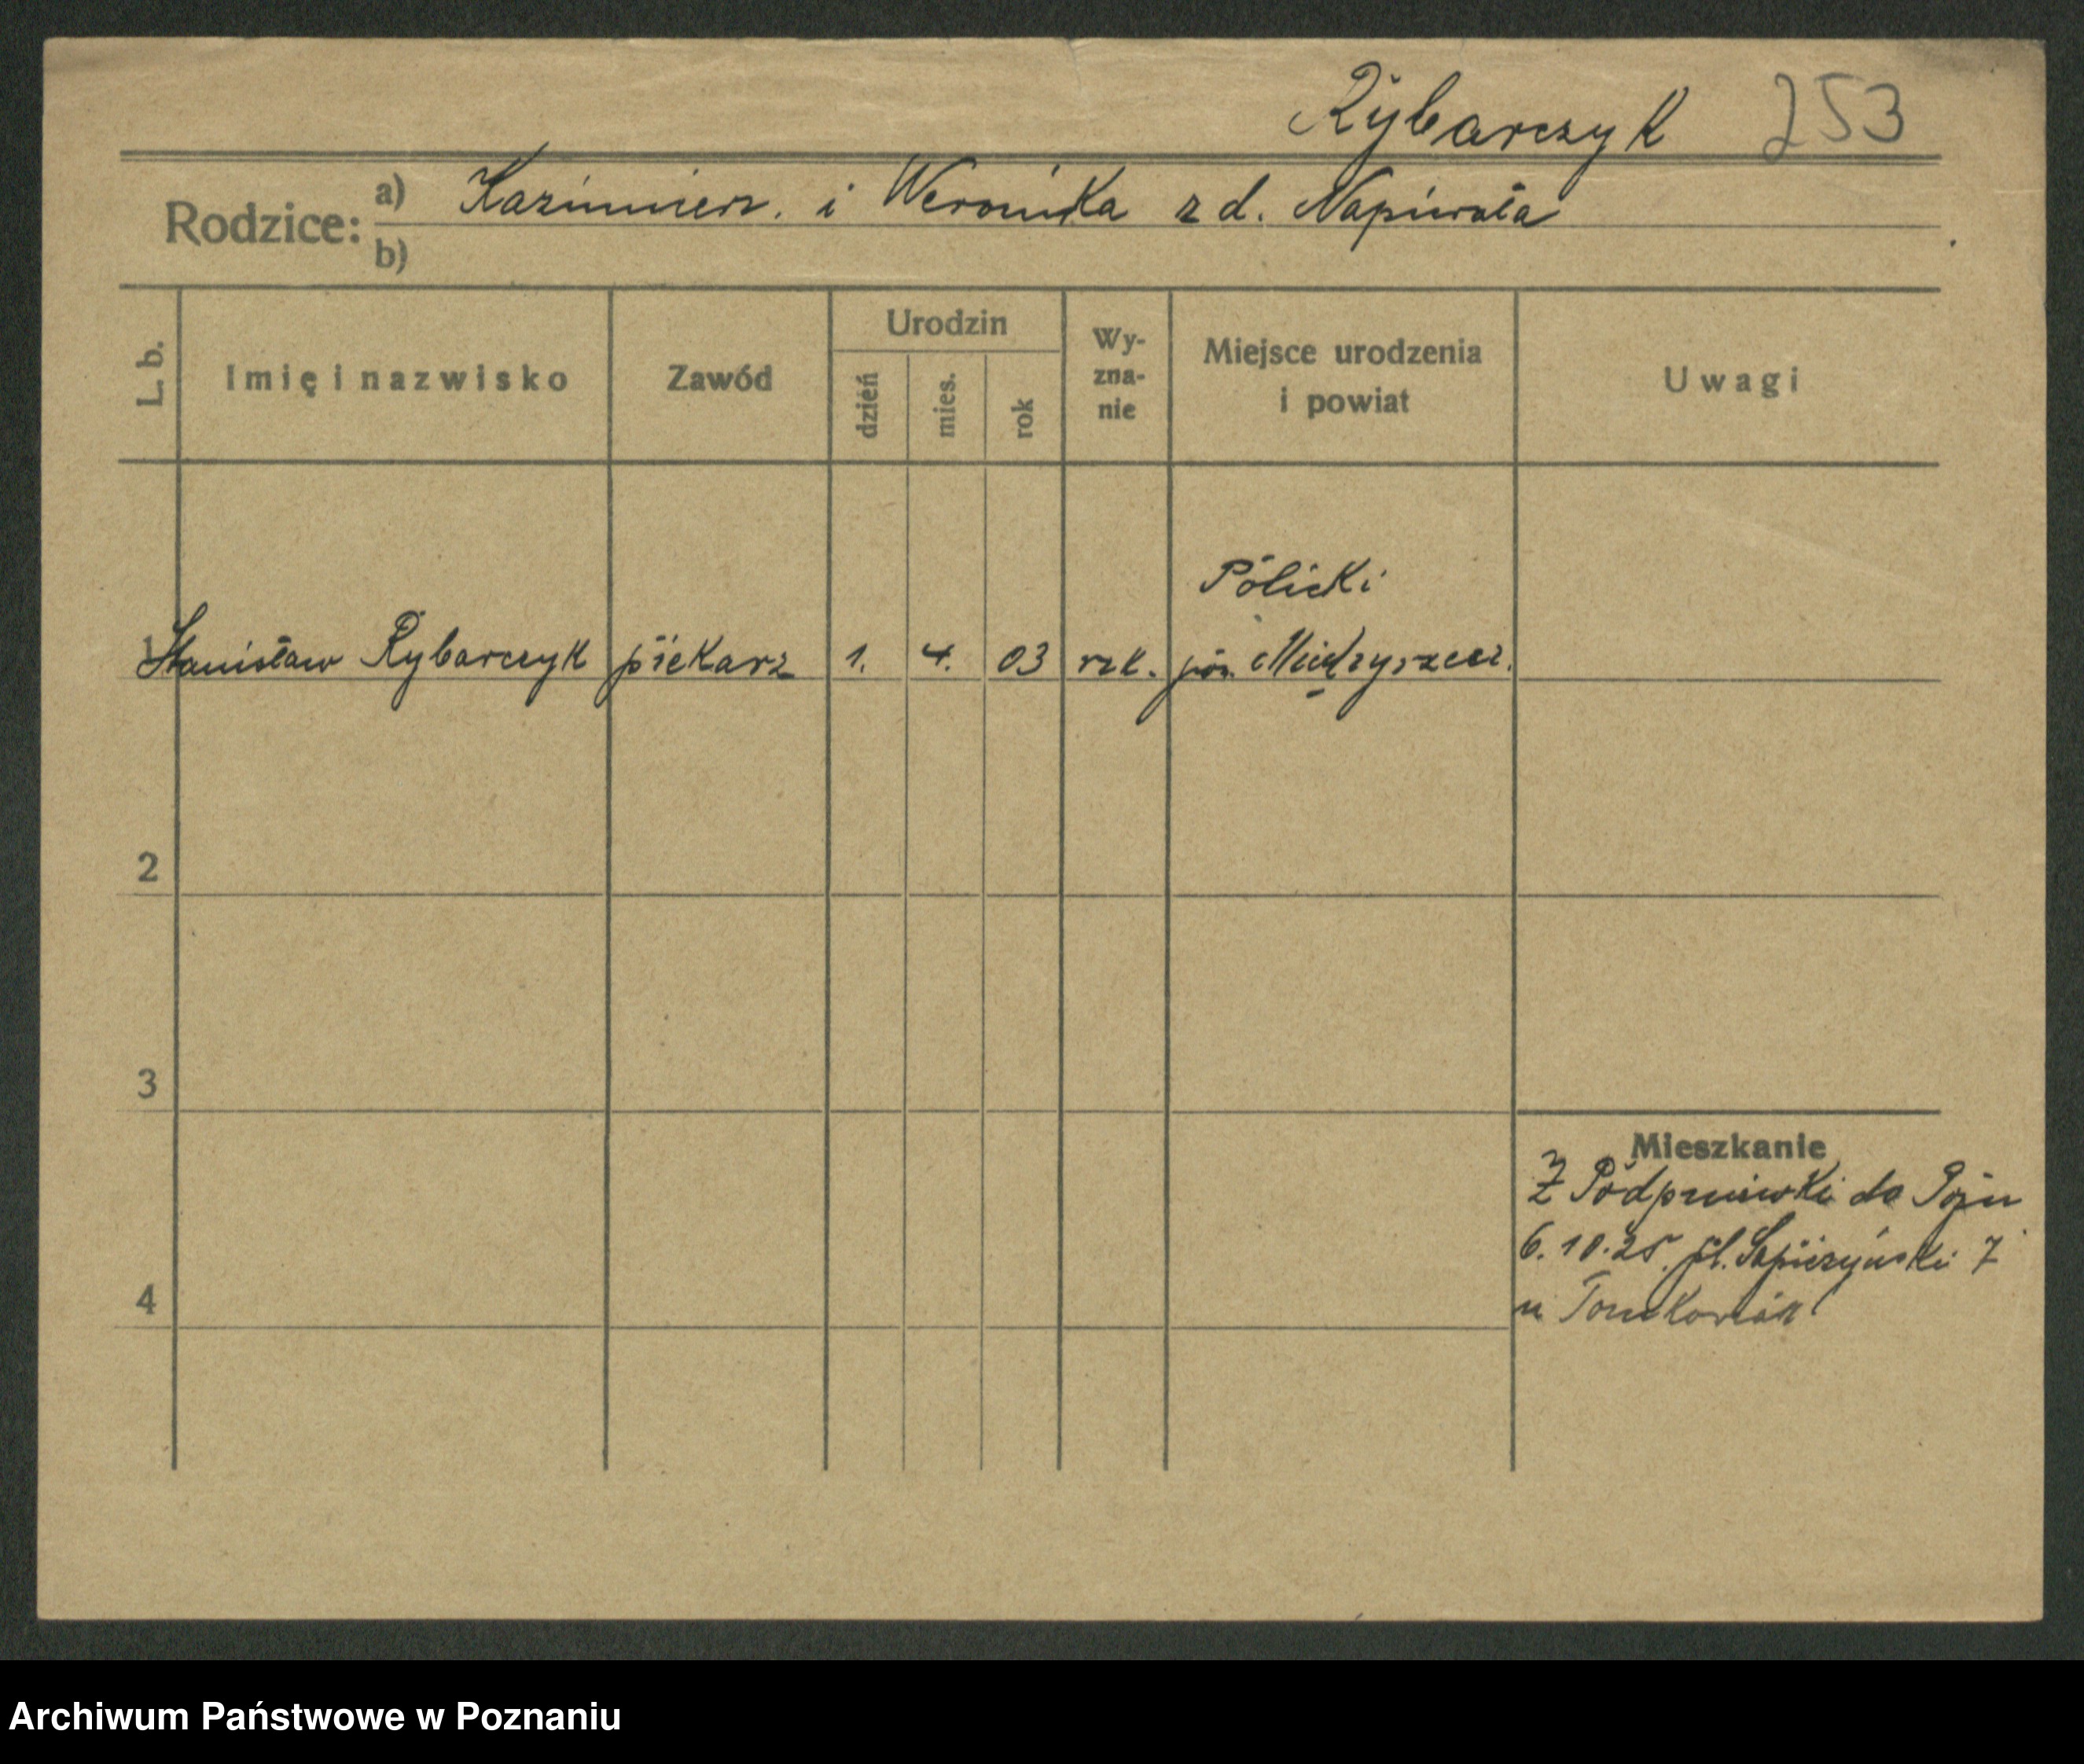 Rybarczyk 253
Rodzice: a) Kazimierz. i Weronika z d. Napierała
b)
L. b.
Imię i nazwisko
Zawód
Urodzin
dzień
mies.
rok
Wy-
zna-
nie
Miejsce urodzenia
i powiat
Uwagi
Policki
1 Stanisław Rybarczyk piekarz 1. 4. 03 rzk. pow. Międzyrzecz.
2
3
Mieszkanie
Z Podpniewki do Pozn
6.10.25. pl. Sapieżyński 7
4
u Tomkowiak
Archiwum Państwowe w Poznaniu